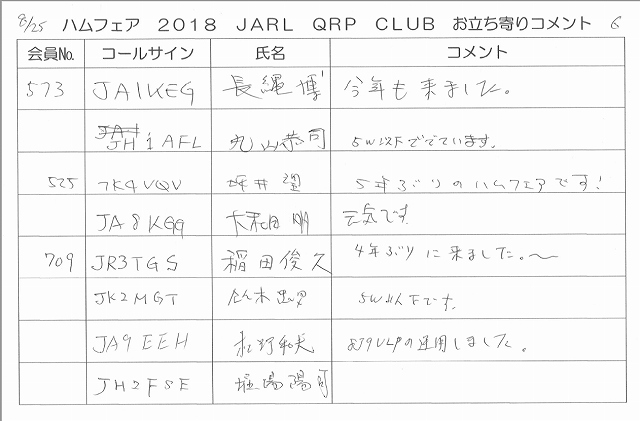 8/25 ハムフェア 2018 JARL QRP CLUB お立ち寄りコメント 6
会員No. コールサイン 氏名 コメント
573 JA1KEG 長縄 博 今年も来ました。
JH1AFL 丸山恭司 5W以下ででています。
525 7K4VQV 坪井 望 5年ぶりのハムフェアです!
JA8KGG 大和田 明 元気です
709 JR3TGS 稲田俊久 4年ぶりに来ました。〜
JK2MGT 鈴木 5W以下です。
JA9EEH 和夫 運用しました。
JH2FSE 堀場陽司